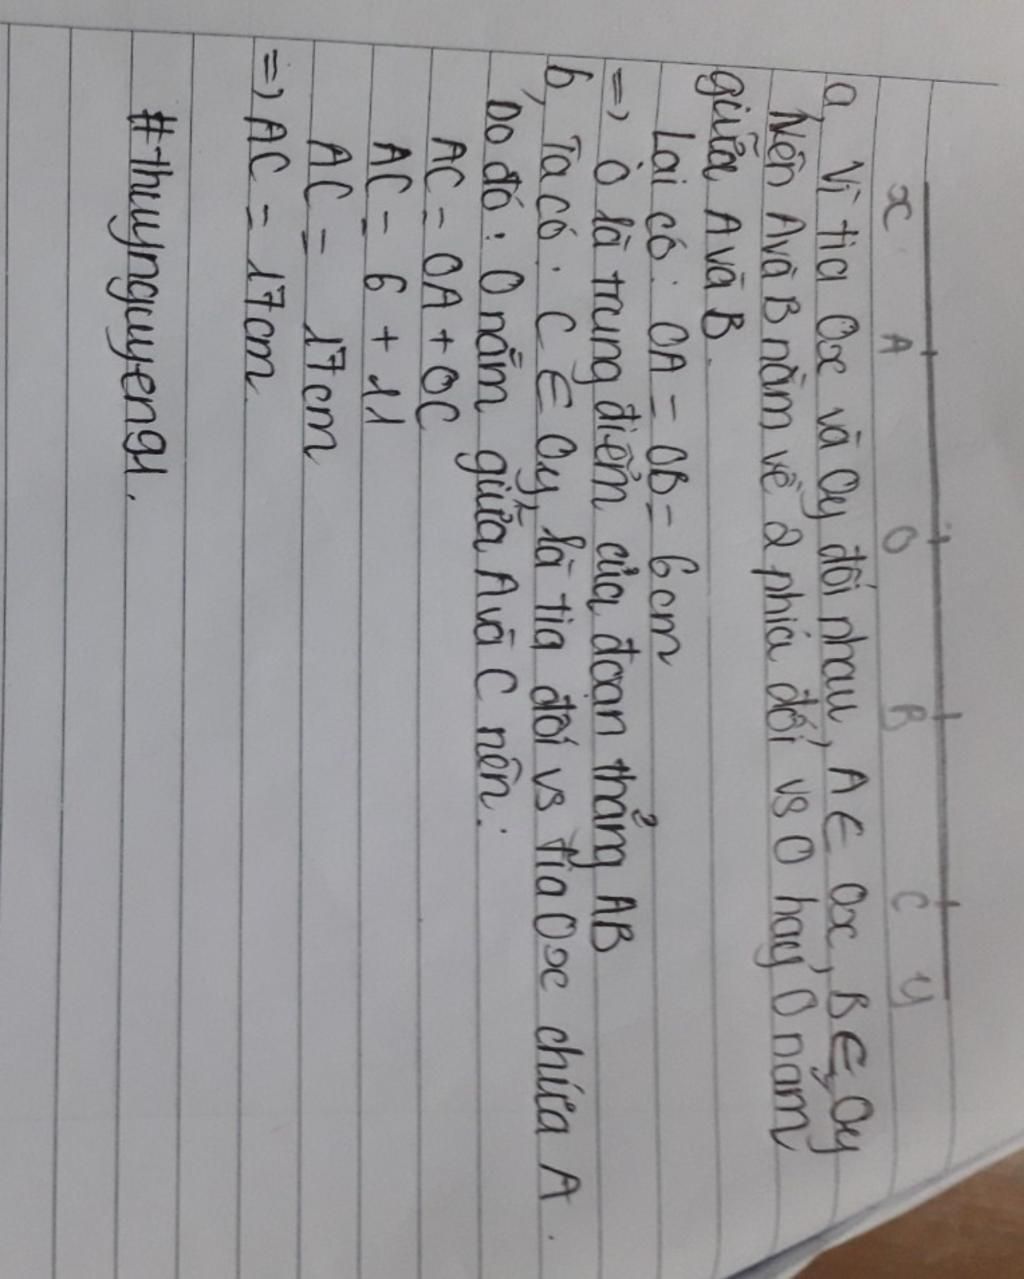 x A O B C y
a, Vì tia Ox và Oy đối nhau, A ∈ Ox, B ∈ Oy
Nên A và B nằm về 2 phía đối vs O hay O nằm
giữa A và B.
Lại có: OA = OB = 6cm
=> O là trung điểm của đoạn thẳng AB
b, Ta có: C ∈ Oy, là tia đối vs tia Ox chứa A.
Do đó: O nằm giữa A và C nên:
AC = OA + OC
AC = 6 + 11
AC = 17cm
=> AC = 17cm.
#thuynguyeng1.